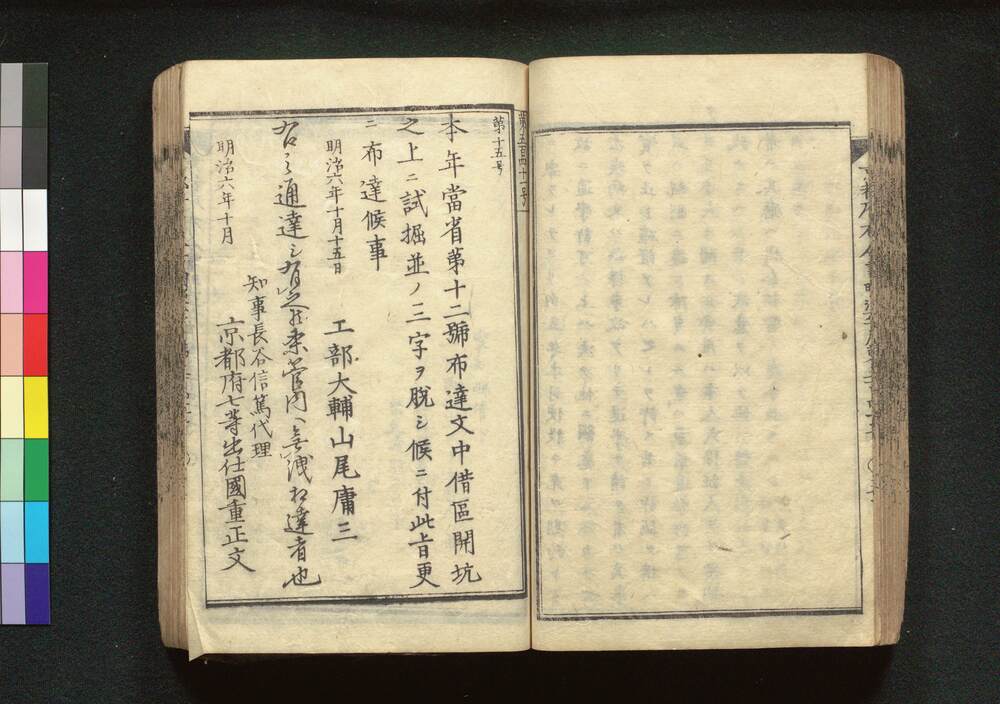 第五百四十一号
第十五号
本年當省第十二號布達文中借區開坑
之上ニ試掘並ノ三字ヲ脱シ候ニ付此旨更
ニ布達候事
明治六年十月十五日
工部大輔山尾庸三
右之通達シ有之候条管内ヘ無洩相達者也
明治六年十月
知事長谷信篤代理
京都府七等出仕國重正文